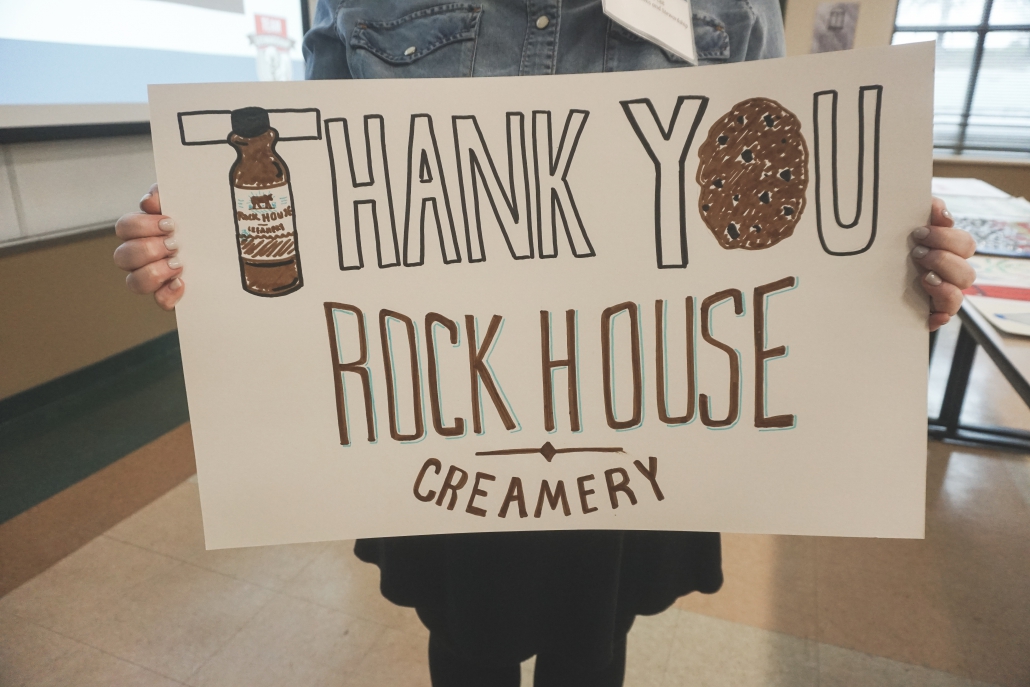 THANK YOU
ROCK HOUSE
CREAMERY
ROCK HOUSE
CREAMERY